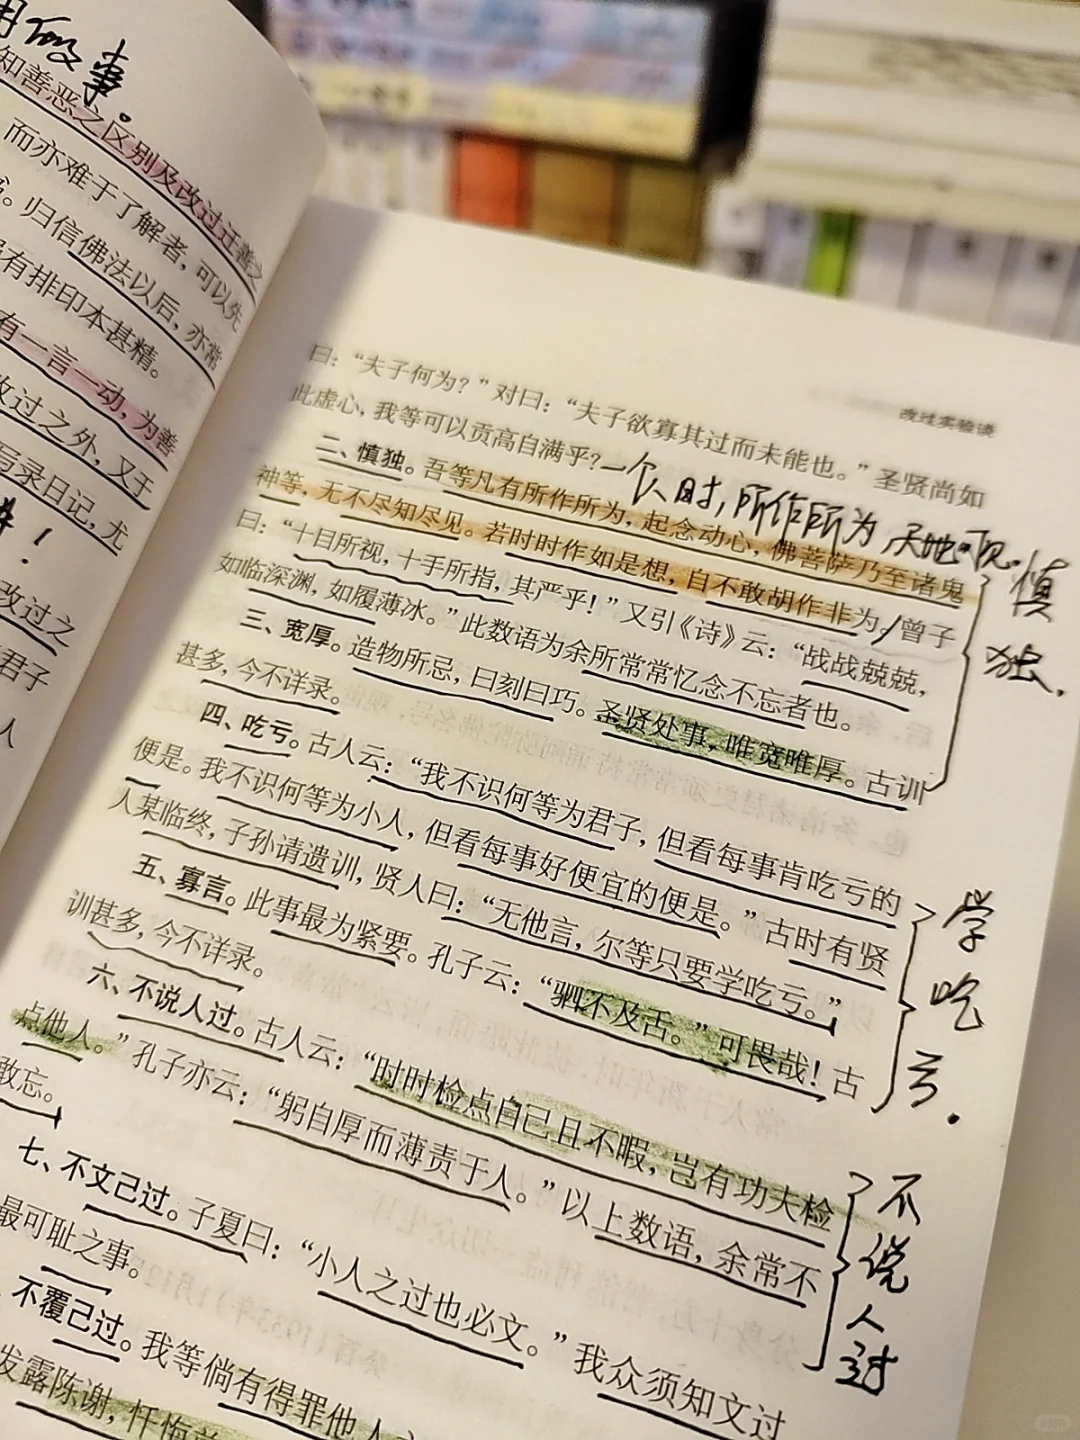 用
事。
知善恶之区别及改过迁善之
而亦难于了解者，可以先
。归信佛法以后，亦常
有排印本甚精。
有一言一动，为善
改过之外，又于
写录日记，尤
！
改过之
君子
人
改过实验谈
曰：“夫子何为？”对曰：“夫子欲寡其过而未能也。”圣贤尚如
此虚心，我等可以贡高自满乎？
一个人时，所作所为天地
二、慎独。吾等凡有所作所为，起念动心，佛菩萨乃至诸鬼
神等，无不尽知尽见。若时时作如是想，自不敢胡作非为。曾子
曰：“十目所视，十手所指，其严乎！”又引《诗》云：“战战兢兢，
如临深渊，如履薄冰。”此数语为余所常常忆念不忘者也。
慎
独.
三、宽厚。造物所忌，曰刻曰巧。圣贤处事，唯宽唯厚。古训
甚多，今不详录。
四、吃亏。古人云：“我不识何等为君子，但看每事肯吃亏的
便是。我不识何等为小人，但看每事好便宜的便是。”古时有贤
人某临终，子孙请遗训，贤人曰：“无他言，尔等只要学吃亏。”
学
吃
亏.
五、寡言。此事最为紧要。孔子云：“驷不及舌。”可畏哉！古
训甚多，今不详录。
六、不说人过。古人云：“时时检点自己且不暇，岂有功夫检
点他人。”孔子亦云：“躬自厚而薄责于人。”以上数语，余常不
敢忘。
不
说
人
过
七、不文己过。子夏曰：“小人之过也必文。”我众须知文过
最可耻之事。
、不覆己过。我等倘有得罪他人
发露陈谢，忏悔